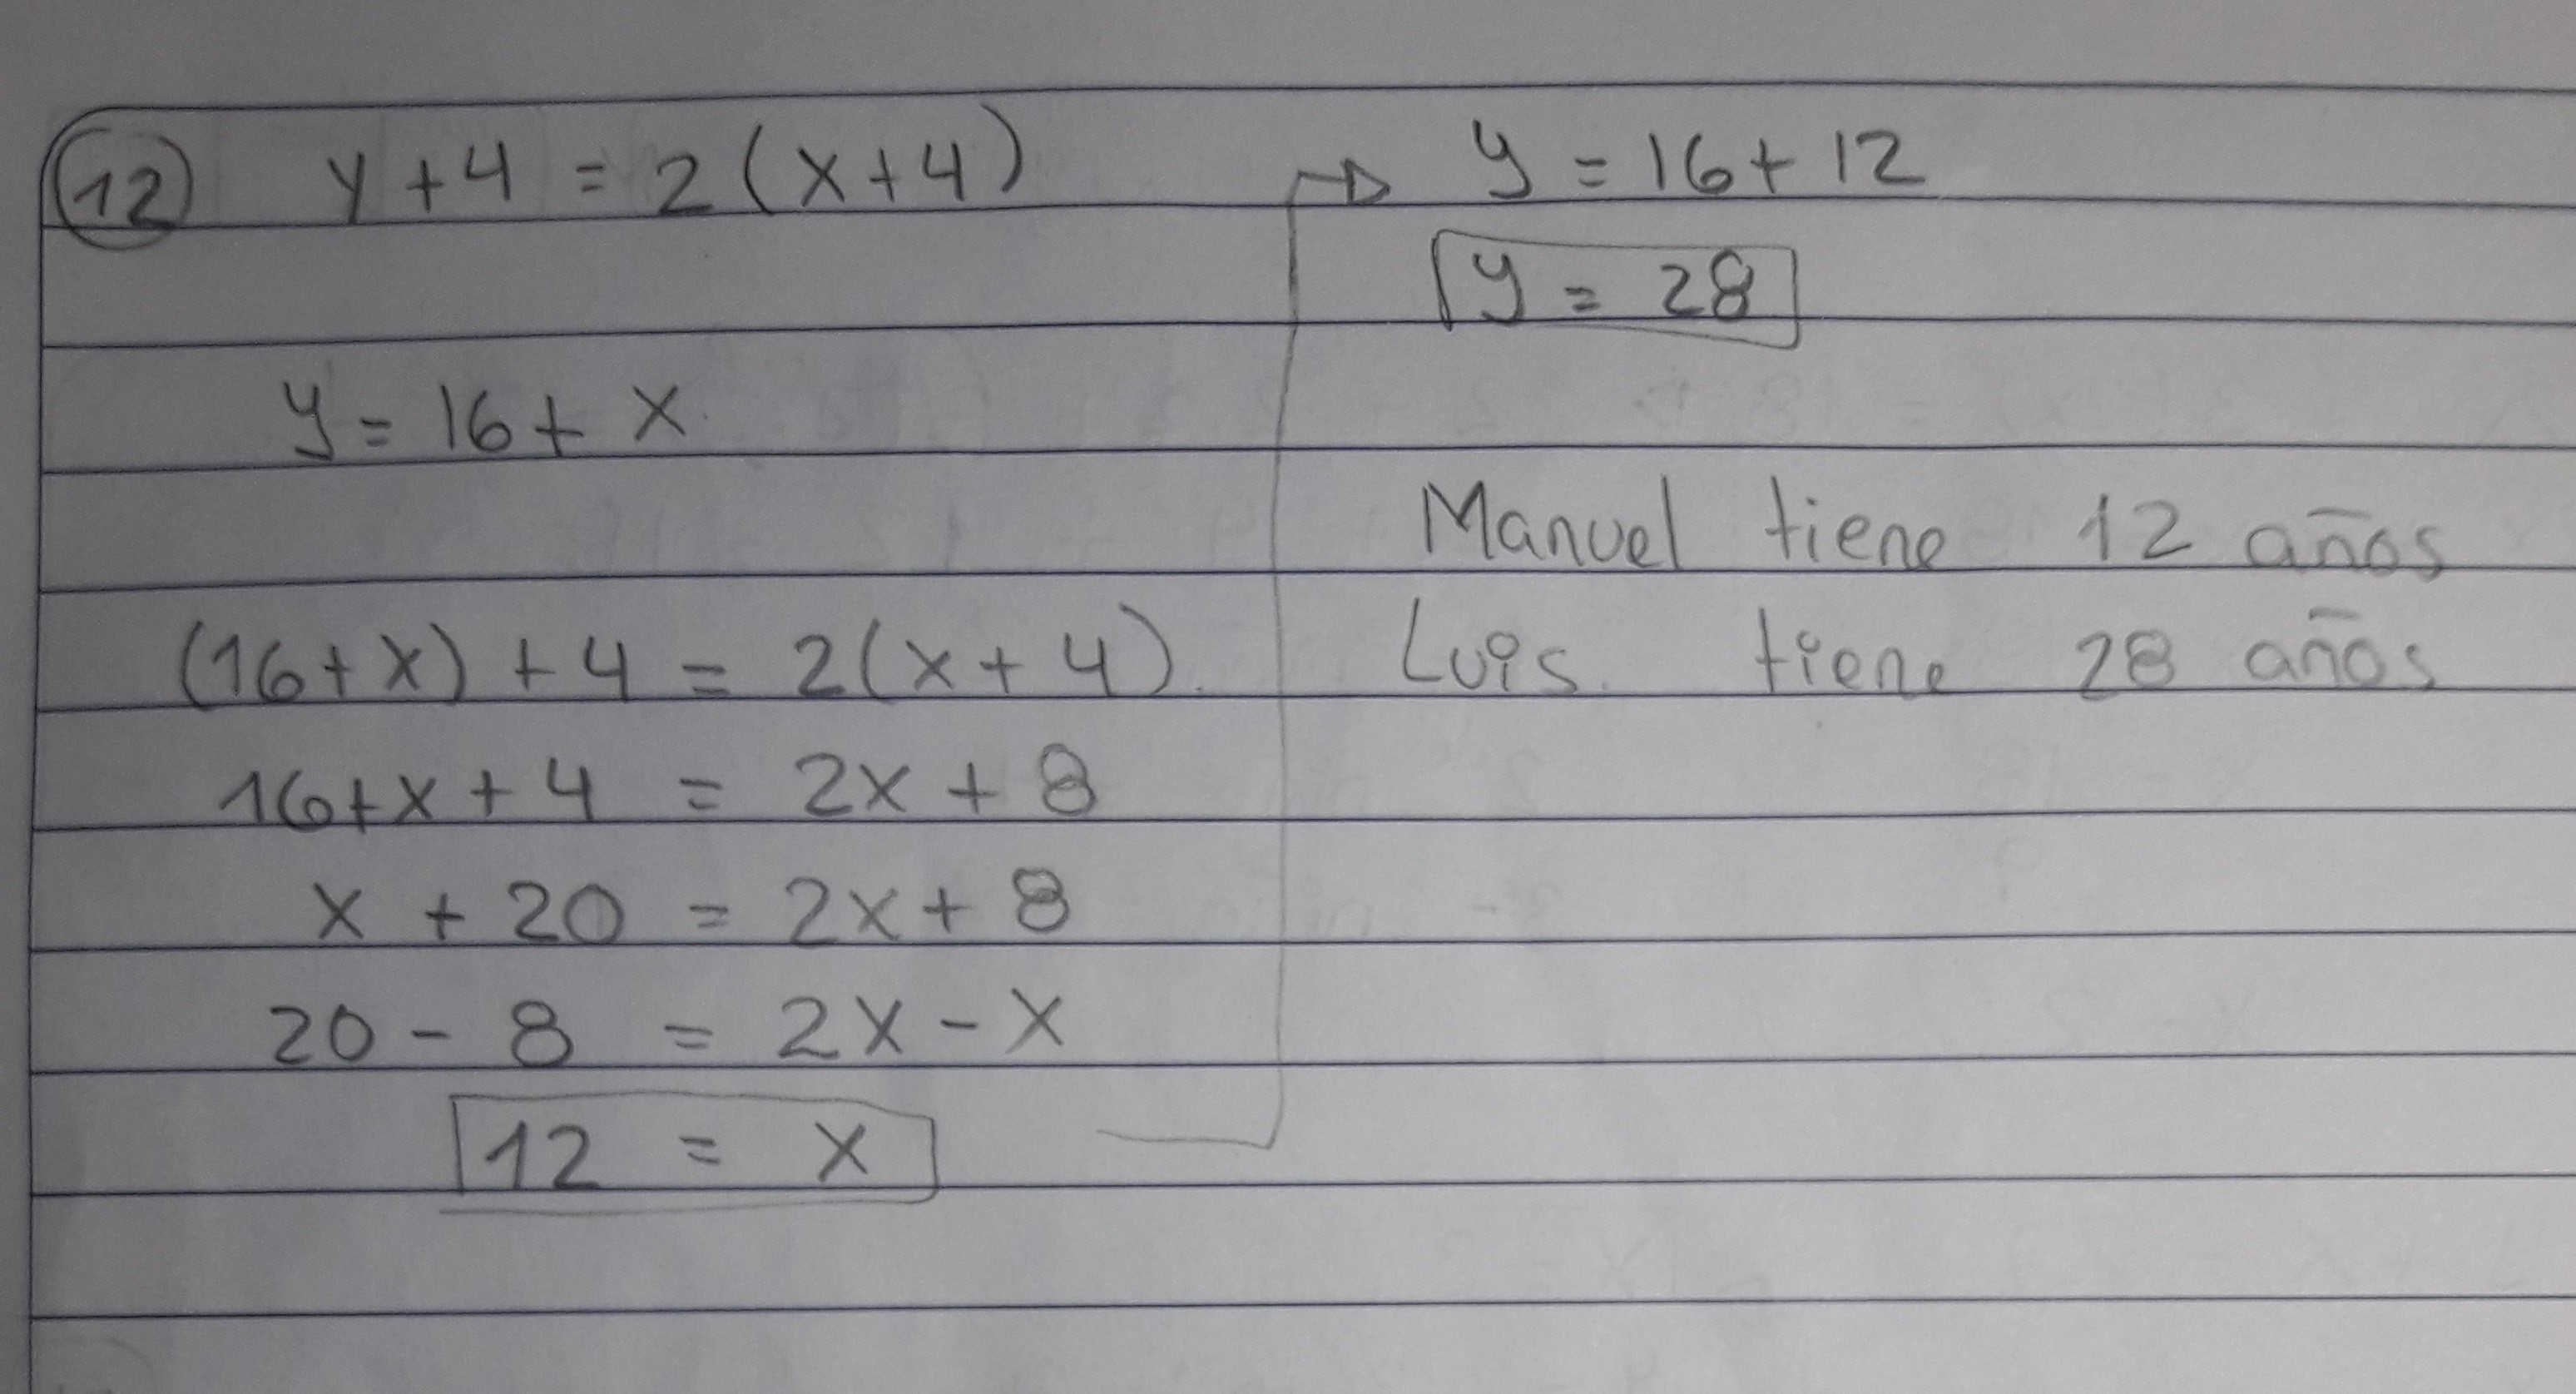 12 y + 4 = 2 (x + 4)
y = 16 + x
(16 + x) + 4 = 2(x + 4)
16 + x + 4 = 2x + 8
x + 20 = 2x + 8
20 - 8 = 2x - x
12 = x
y = 16 + 12
y = 28
Manuel tiene 12 años
Luis tiene 28 años